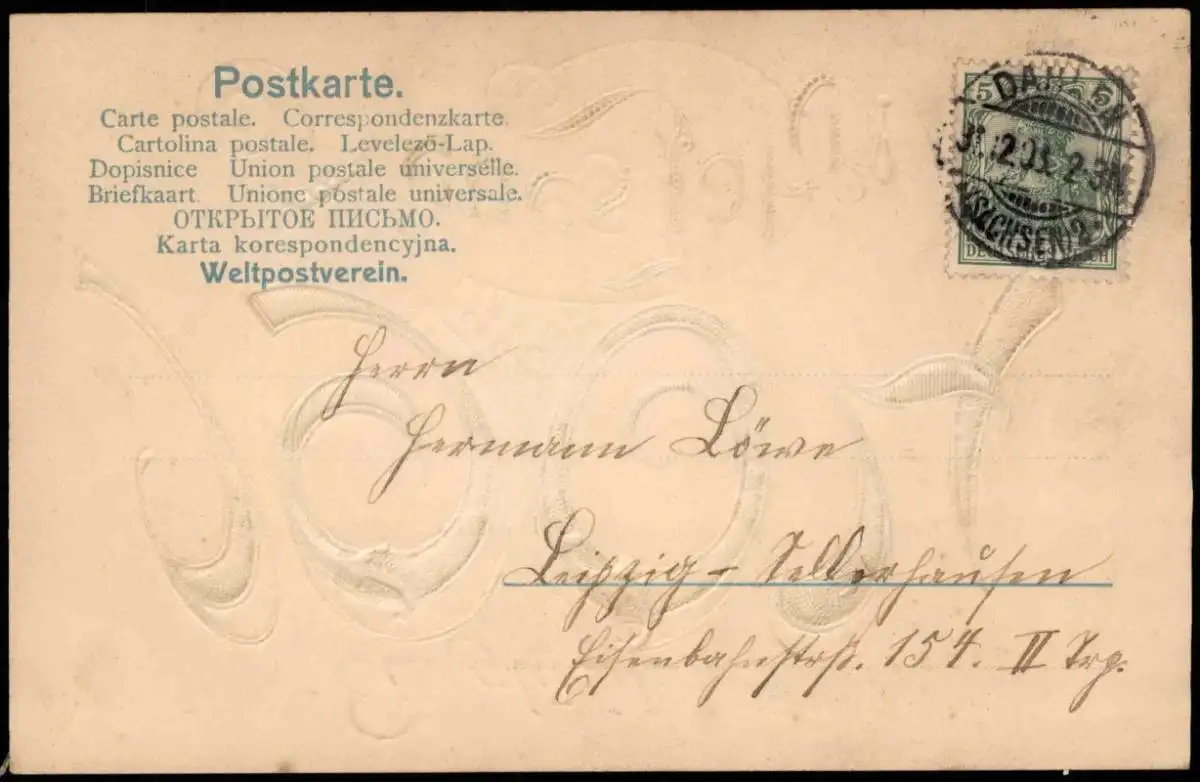 Postkarte.
Carte postale. Correspondenzkarte.
Cartolina postale. Levelező-Lap.
Dopisnice Union postale universelle.
Briefkaart. Unione postale universale.
ОТКРЫТОЕ ПИСЬМО.
Karta korespondencyjna.
Weltpostverein.
5 5
DAHLEN
31.12.03. 2-3N
(SACHSEN) 2
DEUTSCHES REICH
Herrn
Hermann Löwe
Leipzig - Sellerhausen
Eisenbahnstrß. 154. II Trp.